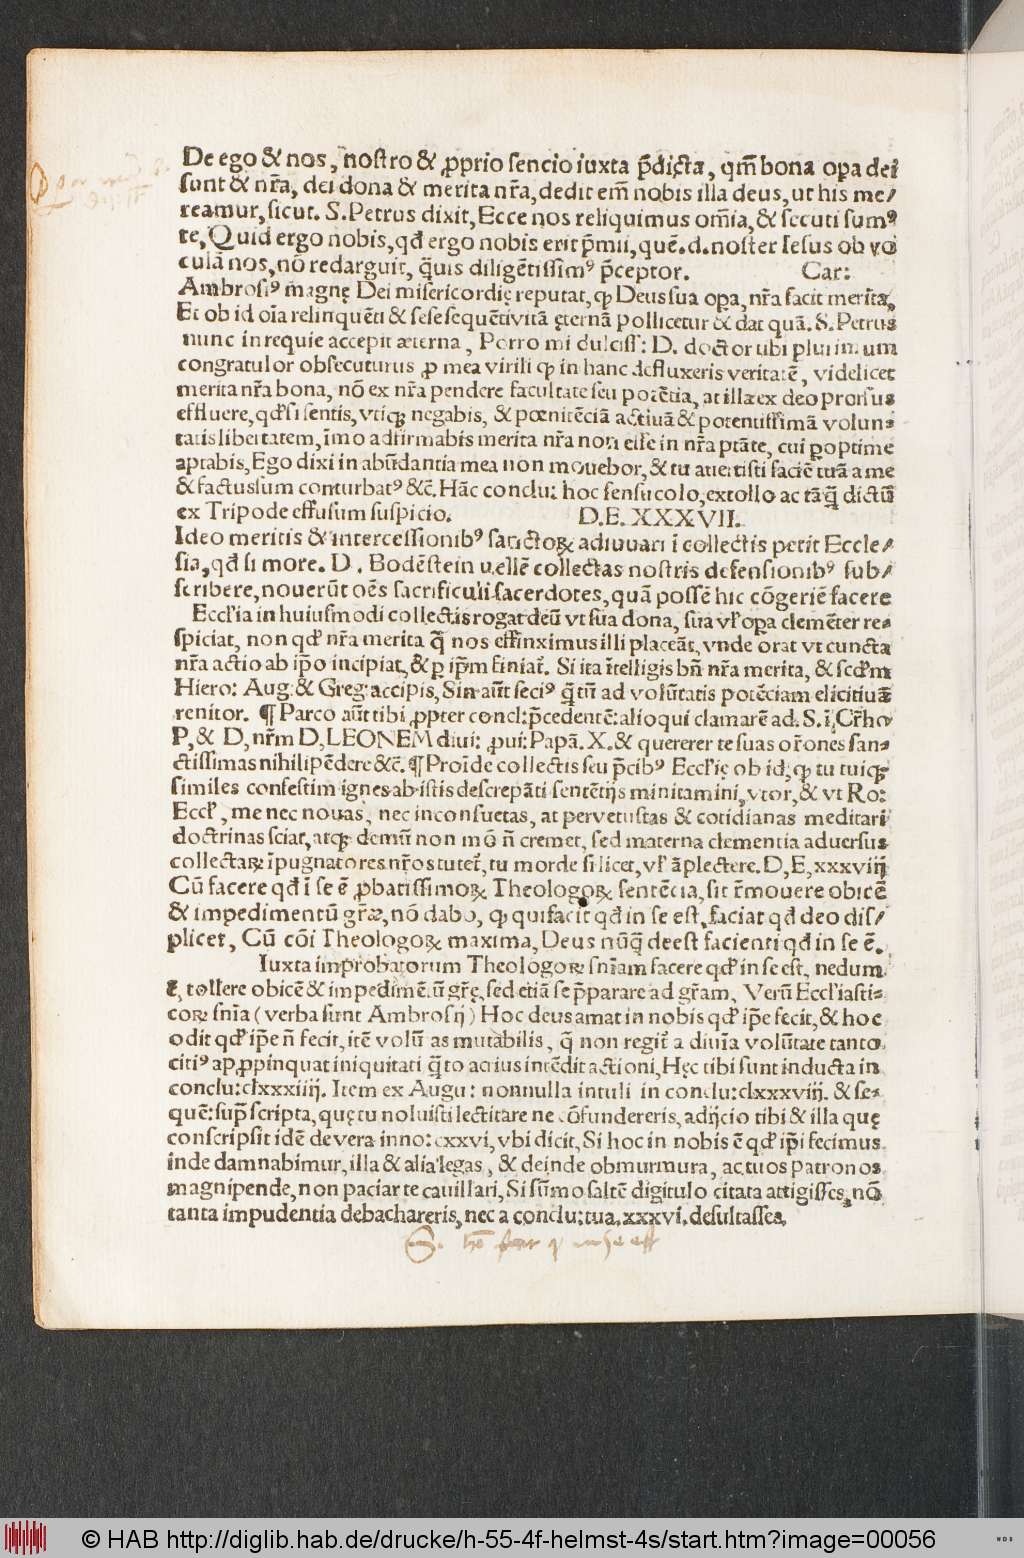 De ego & nos, nostro & ꝓprio sencio iuxta p̄dicta, qm̄ bona oꝑa dei
sunt & nr̄a, dei dona & merita nr̄a, dedit em̄ nobis illa deus, ut his me/
reamur, sicut. S. Petrus dixit, Ecce nos reliquimus om̄ia, & secuti sumꝰ
te, Quid ergo nobis, qd̄ ergo nobis erit p̄mii, quē. d. noster Iesus ob vo
culā nos, nō redarguit, q̄uis diligētissimꝰ p̄ceptor. Car:
Ambrosiꝰ magnę Dei misericordię reputat, ꝙ Deus sua oꝑa, nr̄a facit merita,
Et ob id oīa relinquēti & sese sequēti vitā ęternā pollicetur & dat quā. S. Petrus
nunc in requie accepit æterna, Porro mi dulciss: D. doctor tibi plurimum
congratulor obsecuturus ꝓ mea virili ꝙ in hanc defluxeris veritatē, videlicet
merita nr̄a bona, nō ex nr̄a pendere facultate seu potētia, at illa ex deo prorsus
effluere, qd̄ si sentis, vtiqꝫ negabis, & pœnitēciā actiuā & potentissimā volun-
tatis libertatem, īmo adfirmabis merita nr̄a non esse in nr̄a ptāte, cui ꝑoptime
aptabis, Ego dixi in abūdantia mea non mouebor, & tu auertisti faciē tuā a me
& factus sum conturbatꝰ &c̄. Hāc conclu: hoc sensu colo, extollo ac tāq̄ dictū
ex Tripode effusum suspicio. D.E. XXXVII.
Ideo meritis & intercessionibꝰ sanctoꝝ adiuuari ī collectis petit Eccle/
sia, qd̄ si more. D. Bodēstein vellē collectas nostris defensionibꝰ sub/
scribere, nouerūt oēs sacrificuli sacerdotes, quā possē hic cōgeriē facere
Eccl'ia in huiusmodi collectis rogat deū vt sua dona, sua vl' oꝑa clemēter re-
spiciat, non qd̄ nr̄a merita q̄ nos effinximus illi placeāt, vnde orat vt cuncta
nr̄a actio ab ip̄o incipiat, & ꝑ ip̄m finiat̄. Si ita ītelligis bn̄ nr̄a merita, & scd̄m
Hiero: Aug: & Greg: accipis, Sin aūt seciꝰ q̄tū ad volūtatis potēciam elicitiuā
renitor. ¶ Parco aūt tibi ꝓpter concl: p̄cedentē: alioqui clamarē ad. S. ī Cr̄ho
P, & D, nr̄m D, LEONEM diui: ꝓui: Papā. X. & quererer te suas or̄ones san-
ctissimas nihilipēdere &c̄. ¶ Proīde collectis seu p̄cibꝰ Eccl'ię ob id, ꝙ tu tuiqꝫ
similes confestim ignes ab istis descrepāti sentētijs minitamini, vtor, & vt Ro:
Eccl', me nec nouas, nec inconsuetas, at pervetustas & cotidianas meditari
doctrinas sciat, atqꝫ demū non mō n̄ cremet, sed materna clementia aduersus
collectaꝝ īpugnatores nr̄os tutet̄, tu morde si licet, vl' āplectere. D, E, xxxviij
Cū facere qd̄ ī se ē ꝓbatissimoꝝ Theologoꝝ sentēcia, sit r̄mouere obicē
& impedimentū gr̄æ, nō dabo, ꝙ qui facit qd̄ in se est, faciat qd̄ deo dis/
plicet, Cū cōi Theologoꝝ maxima, Deus nūq̄ deest facienti qd̄ in se ē.
Iuxta improbatorum Theologoꝝ sn̄iam facere qd̄ in se est, nedum
ē, tollere obicē & impedimētū gr̄ę, sed etiā se p̄parare ad gr̄am, Verū Eccl'iasti-
coꝝ sn̄ia (verba sunt Ambrosij) Hoc deus amat in nobis qd̄ ip̄e fecit, & hoc
odit qd̄ ip̄e n̄ fecit, itē volūtas mutabilis, q̄ non regit̄ a diuīa volūtate tanto
citiꝰ apꝓpinquat iniquitati q̄to acrius intēdit actioni, Hęc tibi sunt inducta in
conclu: clxxxiiij. Item ex Augu: nonnulla intuli in conclu: clxxxviij. & se-
quē: sup̄scripta, quę tu noluisti lectitare ne cōfundereris, adijcio tibi & illa quę
conscripsit idē de vera inno: cxxvi, vbi dicit, Si hoc in nobis ē qd̄ ip̄i fecimus
inde damnabimur, illa & alia legas, & deinde obmurmura, ac tuos patronos
magnipende, non paciar te cauillari, Si sūmo saltē digitulo citata attigisses, nō
tanta impudentia debachareris, nec a conclu: tua. xxxvi. desultasses.
© HAB http://diglib.hab.de/drucke/h-55-4f-helmst-4s/start.htm?image=00056